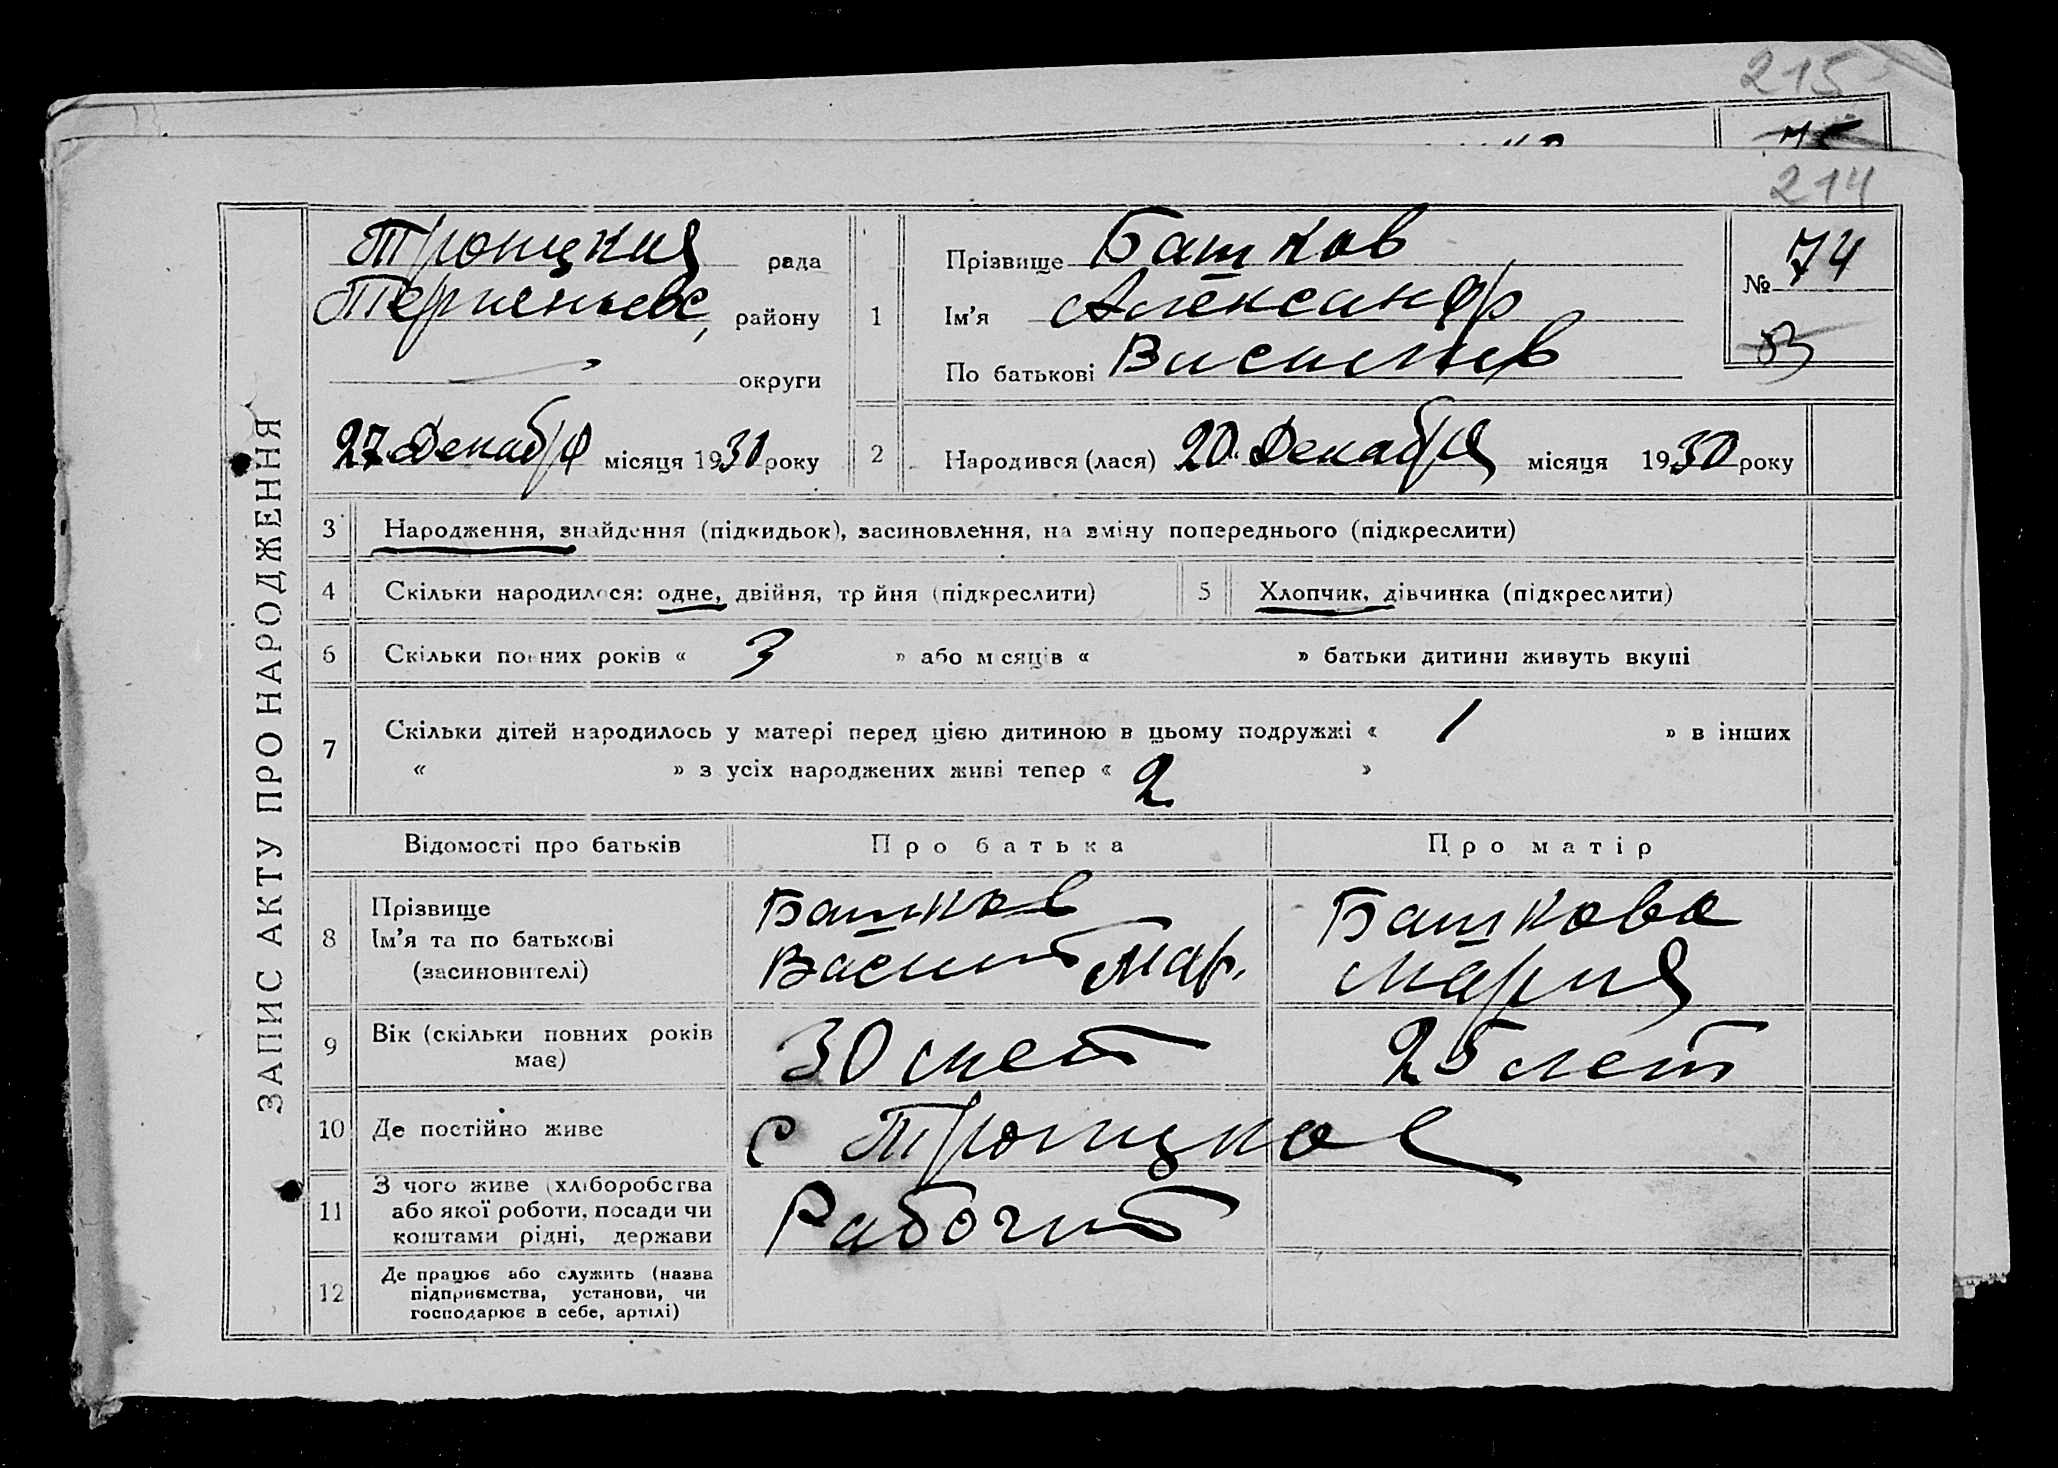 215
75
214
ЗАПИС АКТУ ПРО НАРОДЖЕННЯ
Троицкия рада
Терпеньевс, району
округи
27 Декабря місяця 1930 року
1 Прізвище Башков
Ім'я Александр
По батькові Васильев
№ 74
2 Народився (лася) 20 Декабря місяця 1930 року
3 Народження, знайдення (підкидьок), засиновлення, на зміну попереднього (підкреслити)
4 Скільки народилося: одне, двійня, тр йня (підкреслити) 5 Хлопчик, дівчинка (підкреслити)
6 Скільки повних років « 3 » або місяців « » батьки дитини живуть вкупі
7 Скільки дітей народилось у матері перед цією дитиною в цьому подружжі « 1 » в інших
« » з усіх народжених живі тепер « 2 »
Відомості про батьків Про батька Про матір
8 Прізвище
Ім'я та по батькові
(засиновителі)
Башков
Василий Мар.
Башкова
Мария
9 Вік (скільки повних років
має)
30 лет 25 лет
10 Де постійно живе с Троицкое
11 З чого живе (хліборобства
або якої роботи, посади чи
коштами рідні, держави
Рабочий
12 Де працює або служить (назва
підприємства, установи, чи
господарює в себе, артілі)